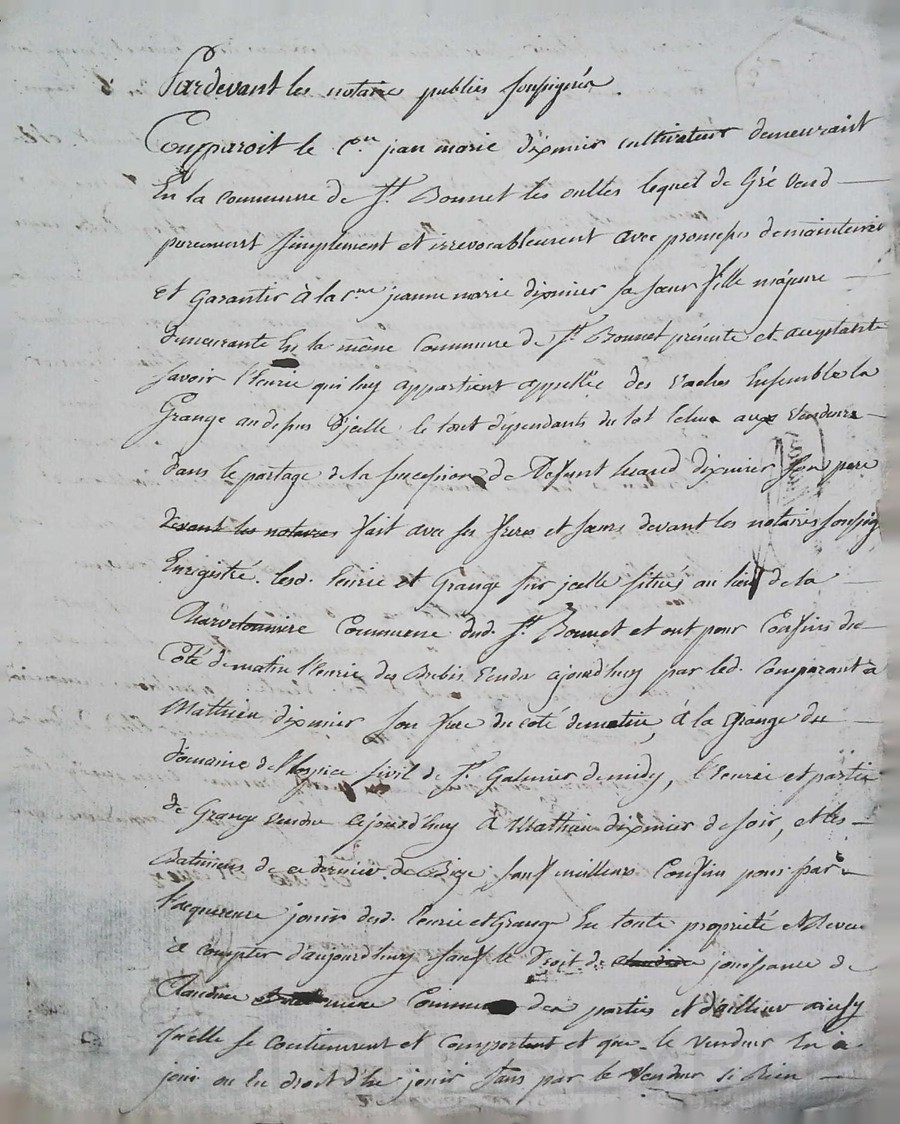 Pardevant les notaire publics soussignés.
Comparoit le C.en jean marie dixmier cultivateur demeurant
En la commune de St. Bonnet les oulles lequel de Gré vend
purement simplement et irrevocablement avec promesses de maintenir
et Garantir à la C.ne jeanne marie dixmier sa sœur fille majeure
demeurante En la même Commune de St. Bonnet présente et acceptante
savoir l'Ecurie qui luy appartient appellée des vaches Ensemble la
Grange au dessus d'jcelle le tout dépendants du lot Echu aux vendeurs
dans le partage de la succession de defunt dixmier son pere
devant les notaires fait avec ses freres et sœurs devant les notaires soussig
Enregistré. lesd. Ecurie et Grange sur jcelle situés au lieu de la
Commune dud. St. Bonnet et ont pour Confins du
Coté de matin l'Ecurie des Brebis vendu ajourd'huy par led. Comparant à
Mathieu dixmier son frere du coté de matin, à la Grange du
domaine de l'hospice sivil de St. Galmier de midy, l'Ecurie et partie
de Grange vendu cejourd'huy à Mathieu dixmier de soir, et les
Batimens de ce dernier de Bize, sauf meilleurs Confins pour par
l'acquereure jouir desd. Ecurie et Grange En toute propriété
à compter d'aujourd'huy sauf le Droit de jouissance de
Claudine mere Commune des parties et d'ailleur ainsy
qu'elle se contiennent et comportent et que le vendeur En a
joui ou En droit d'En jouir sans par le vendeur si Rien